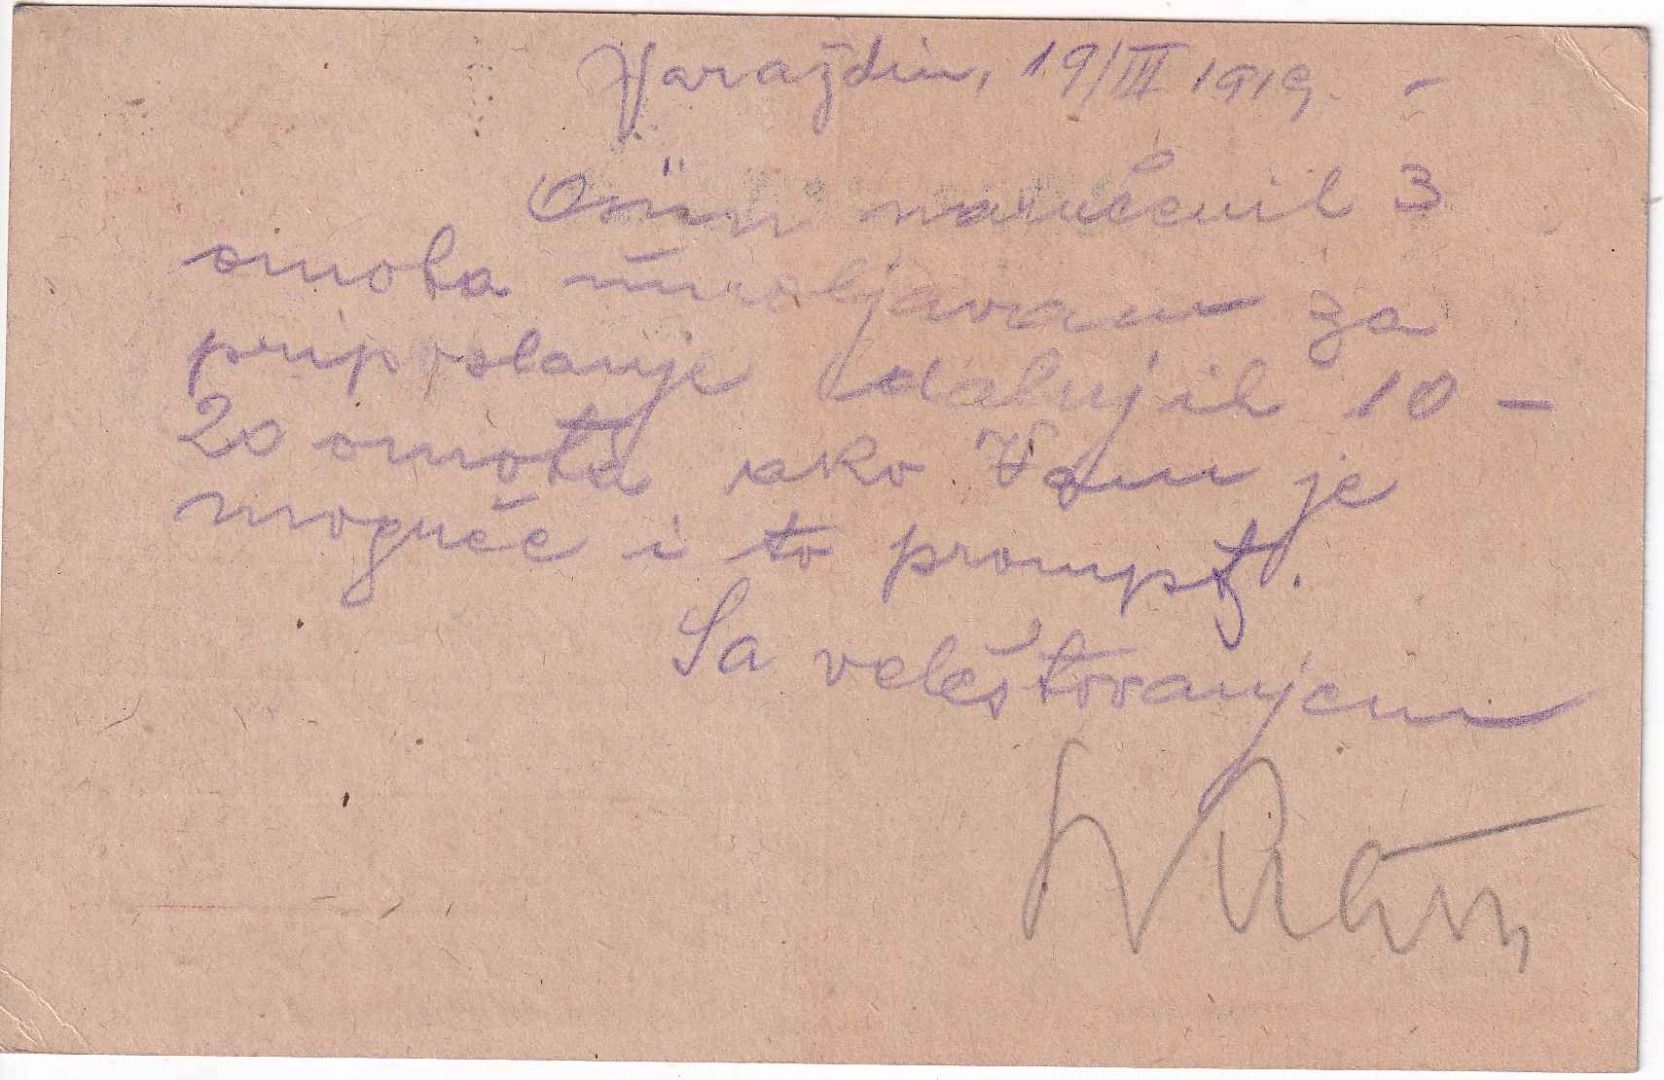 Varaždin, 19/III 1919. -
Osim naručenih 3
omota umoljavam za
priposlanje daljnjih 10 -
20 omota ako Vam je
moguče i to prompt.
Sa veleštovanjem